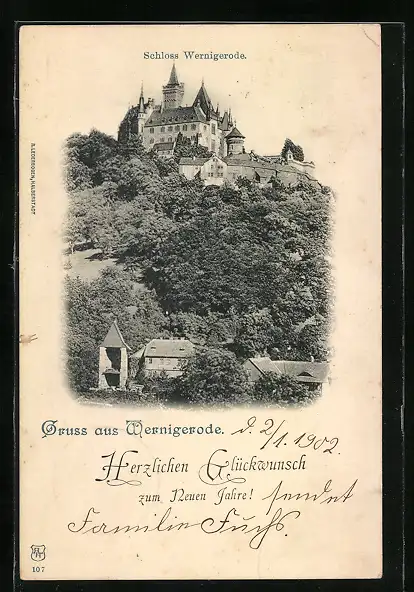 Schloss Wernigerode.
R. LEDERBOGEN, HALBERSTADT
Gruss aus Wernigerode. d. 2/1. 1902.
Herzlichen Glückwunsch
zum Neuen Jahre! sendet
Familie Fuchs.
107